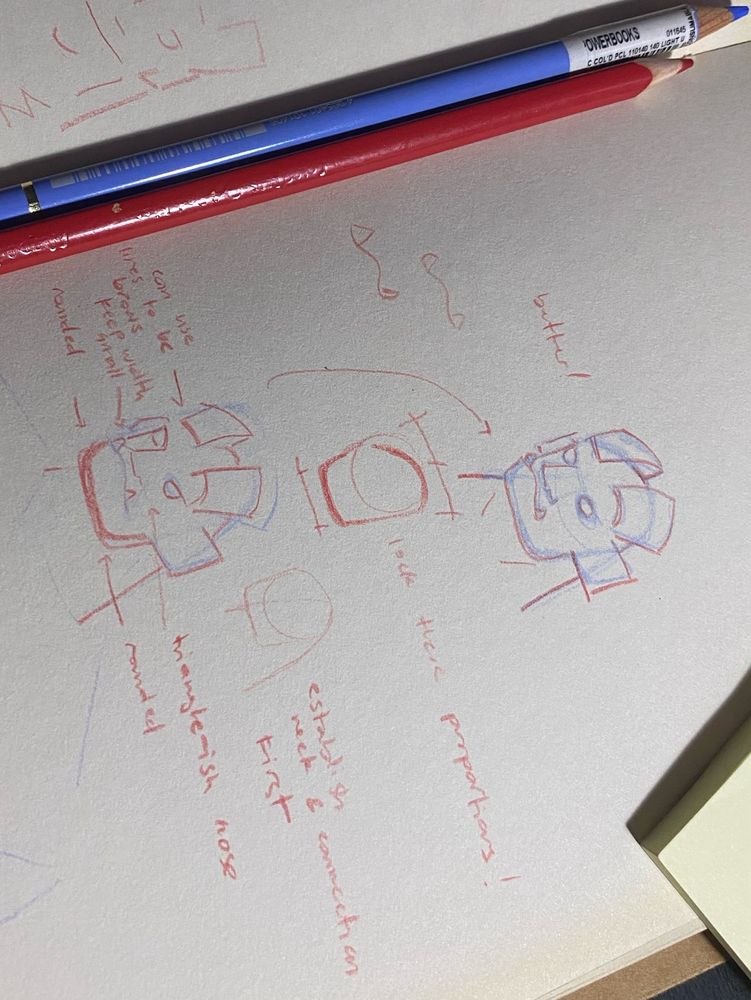 POWERBOOKS
011645
C COL'D PCL 110140 140 LIGHT U
can use
lines to be
brows
keep width
small
rounded
butter!
lock these proportions!
establish
neck & connection
first
triangle-ish nose
rounded